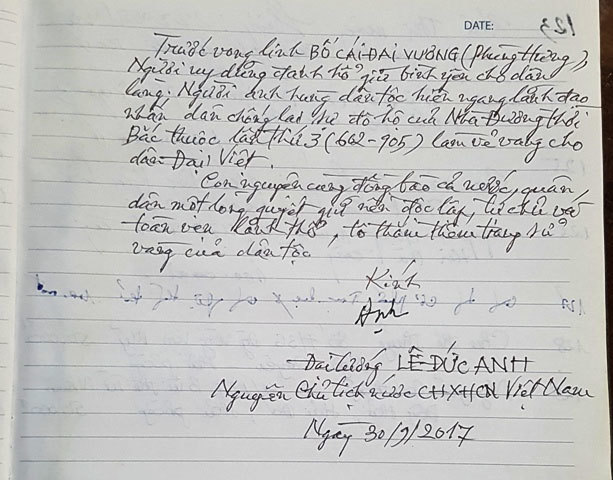 DATE: 123
Trước vong linh BỐ CÁI ĐẠI VƯƠNG (Phùng Hưng),
Người uy dũng đánh hổ giữ bình yên cho dân
làng. Người anh hùng dân tộc hiên ngang lãnh đạo
nhân dân chống lại sự đô hộ của Nhà Đường thời
Bắc thuộc lần thứ 3 (602-905) làm vẻ vang cho
dân Đại Việt.
Con nguyện cùng đồng bào cả nước, quân
dân một lòng quyết giữ nền độc lập, tự chủ và
toàn vẹn lãnh thổ, tô thắm thêm trang sử
vàng của dân tộc
Kính
Anh
Đại tướng LÊ ĐỨC ANH
Nguyên Chủ tịch nước CHXHCN Việt Nam
Ngày 30/9/2017